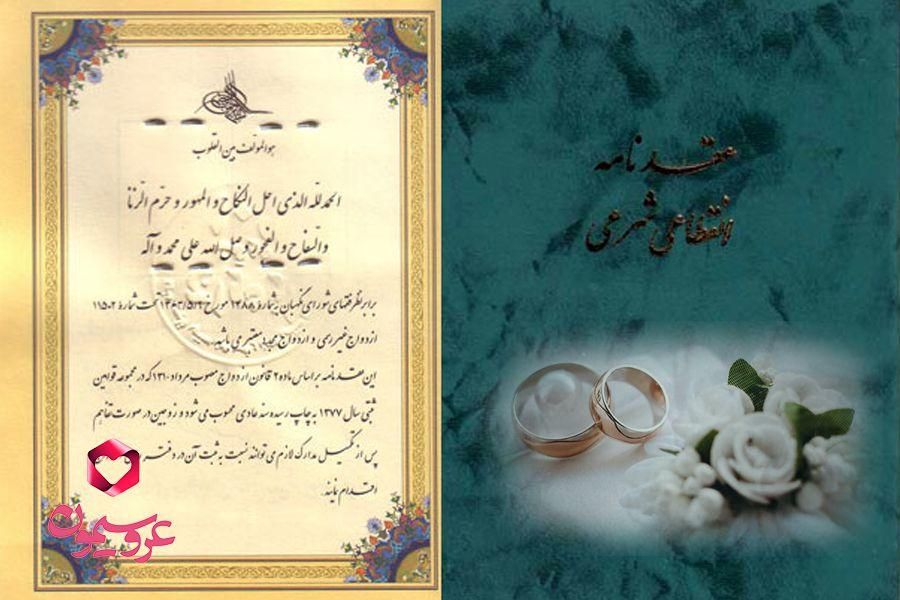 هو المؤلف بین القلوب
الحمدلله الذی احل النکاح و المهور و حرم الزنا
والسفاح و الفجور و صل الله علی محمد و آله
برابر نظر فقهای شورای نگهبان بشماره ۱۴۸۸ مورخ ۱۳۶۳/۵/۹ تحت شماره ۱۱۵۰۲
ازدواج غیر رسمی و ازدواج مجدد معتبر می باشد.
این عقدنامه بر اساس ماده ۲ قانون ازدواج مصوب مرداد ۱۳۱۰ که در مجموعه قوانین
ثبتی سال ۱۳۷۷ به چاپ رسیده سند عادی محسوب می شود و زوجین در صورت تفاهم
پس از تکمیل مدارک لازم می توانند نسبت به ثبت آن در دفتر
اقدام نمایند.
عروسیمون
عقدنامه
انقطاعی شرعی